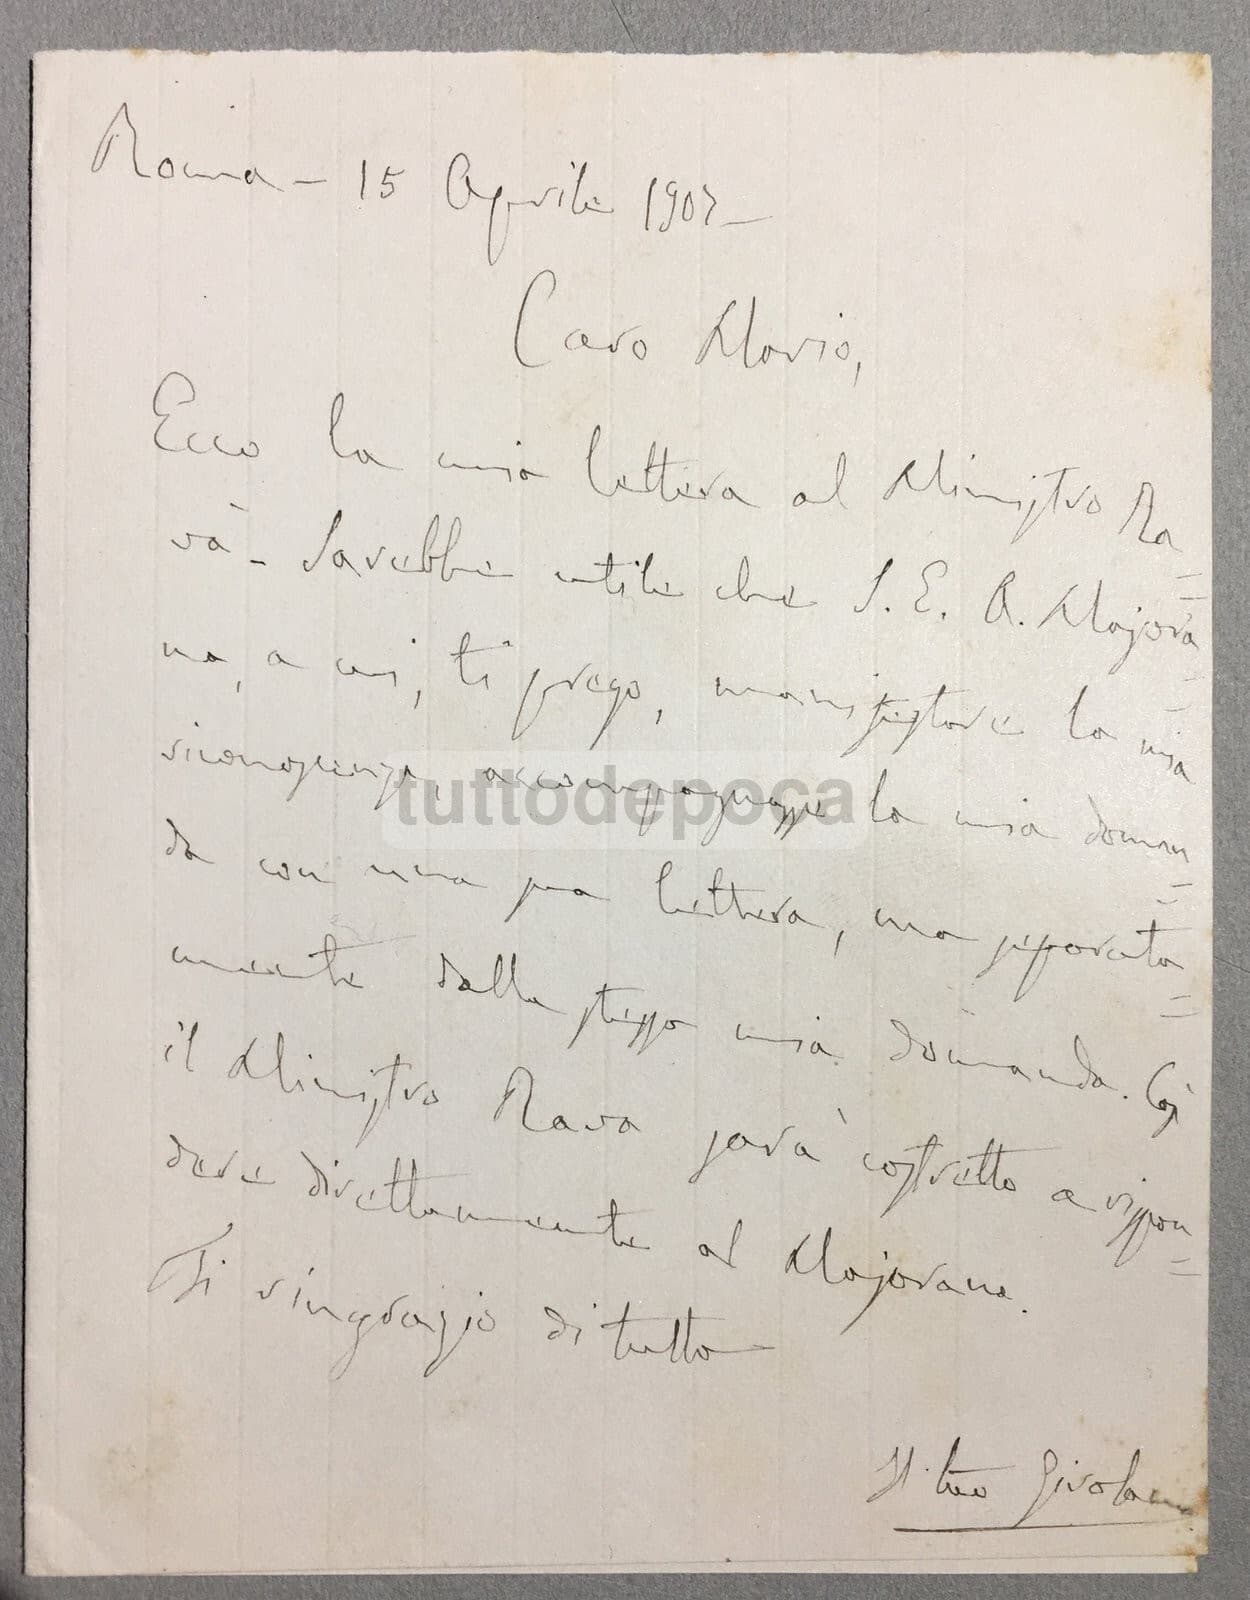 Roma - 15 Aprile 1907 -
Caro Mario,
Ecco la mia lettera al Ministro Ra
và - Sarebbe utile che S. E. A. Majora
na, a cui, ti prego, manifestare la mia
riconoscenza, accompagnasse la mia doman
da con una sua lettera, ma separata
mente dalla stessa mia domanda. Così
il Ministro Rava sarà costretto a rispon
dere direttamente al Majorana.
Ti ringrazio di tutto
Il tuo Girolamo
tuttodepoca